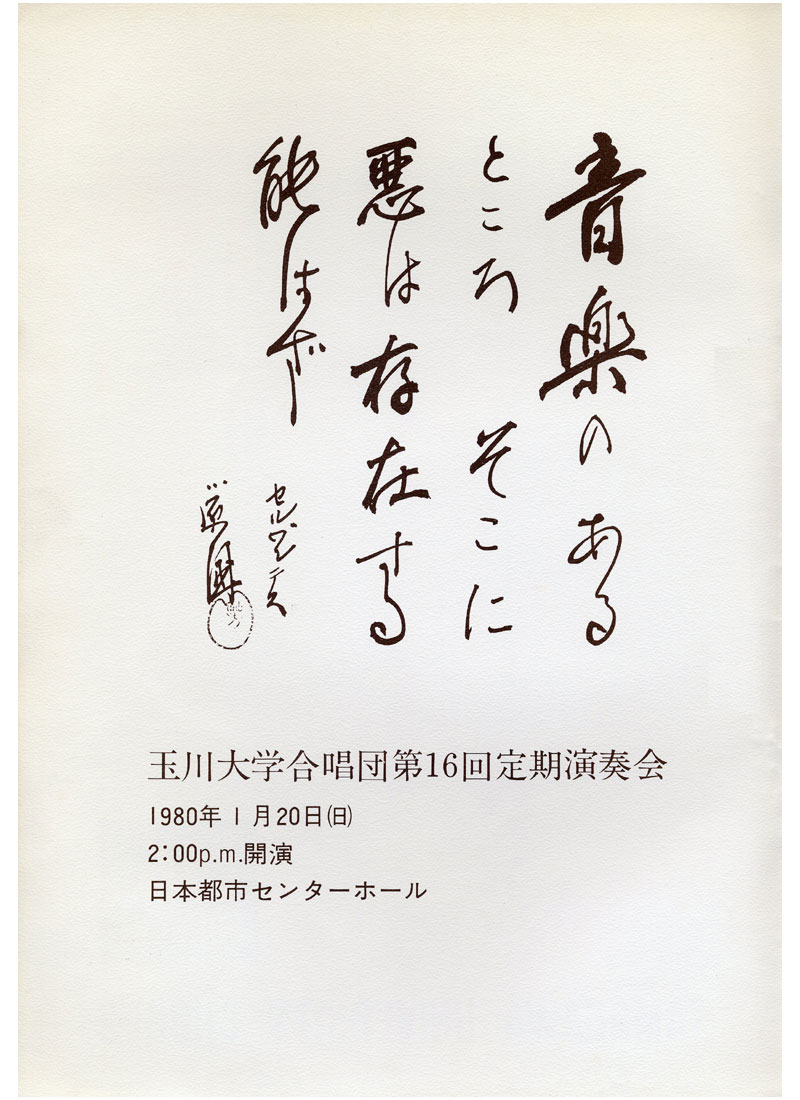 音楽のある
ところ そこに
悪は存在する
能はず
セルバンテス
玉川大学合唱団第16回定期演奏会
1980年1月20日(日)
2:00p.m.開演
日本都市センターホール